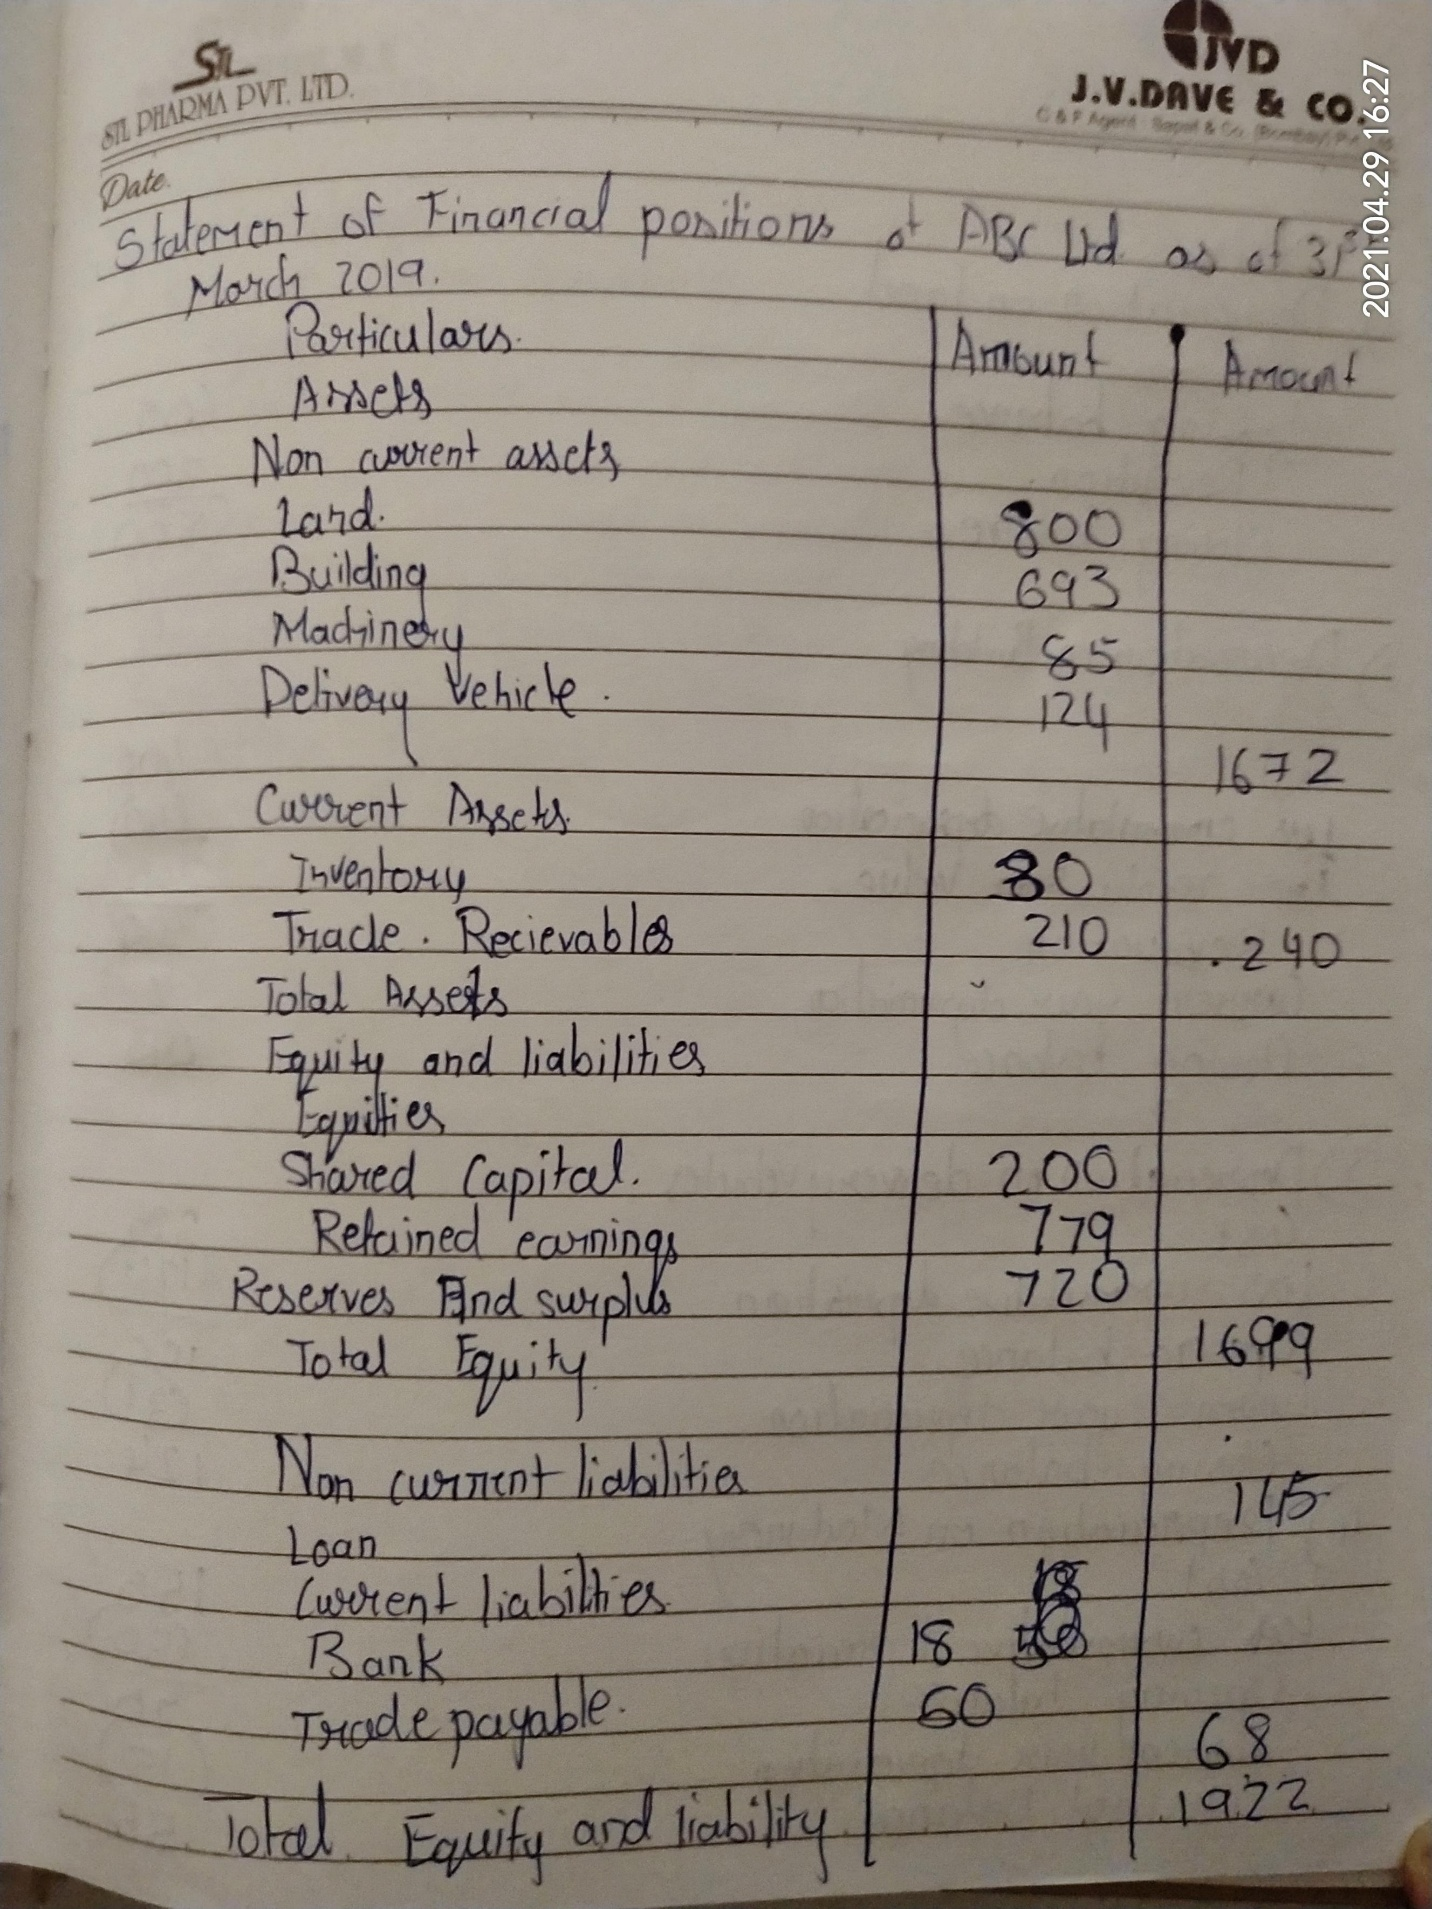 STL
STL PHARMA PVT. LTD.
JVD
J.V.DAVE & CO.
2021.04.29 16:27
Date.
Statement of Financial positions of ABC Ltd. as of 31st
March 2019.
Particulars. Amount Amount
Assets
Non current assets
Land. 800
Building 693
Machinery 85
Delivery Vehicle. 124
1672
Current Assets.
Inventory 30
Trade. Recievables 210 240
Total Assets
Equity and liabilities
Equities
Shared Capital. 200
Retained earnings 779
Reserves And surplus 720
Total Equity 1699
Non current liabilities 145
Loan
Current liabilities
Bank 18
Trade payable. 50
68
Total Equity and liability 1922